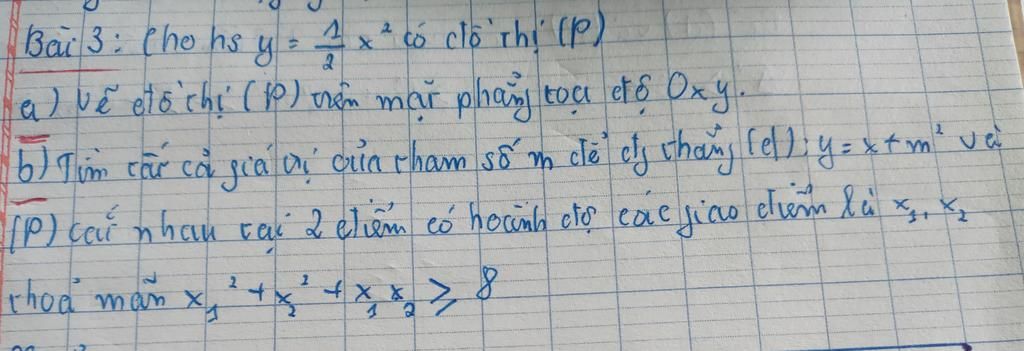 Bài 3: Cho hs y = 1/2 x² có đồ thị (P)
a) Vẽ đồ thị (P) trên mặt phẳng toạ độ Oxy.
b) Tìm tất cả giá trị của tham số m để đg thẳng (d): y = x + m² và
(P) cắt nhau tại 2 điểm có hoành độ các giao điểm là x₁, x₂
thoả mãn x₁² + x₂² + x₁x₂ ≥ 8